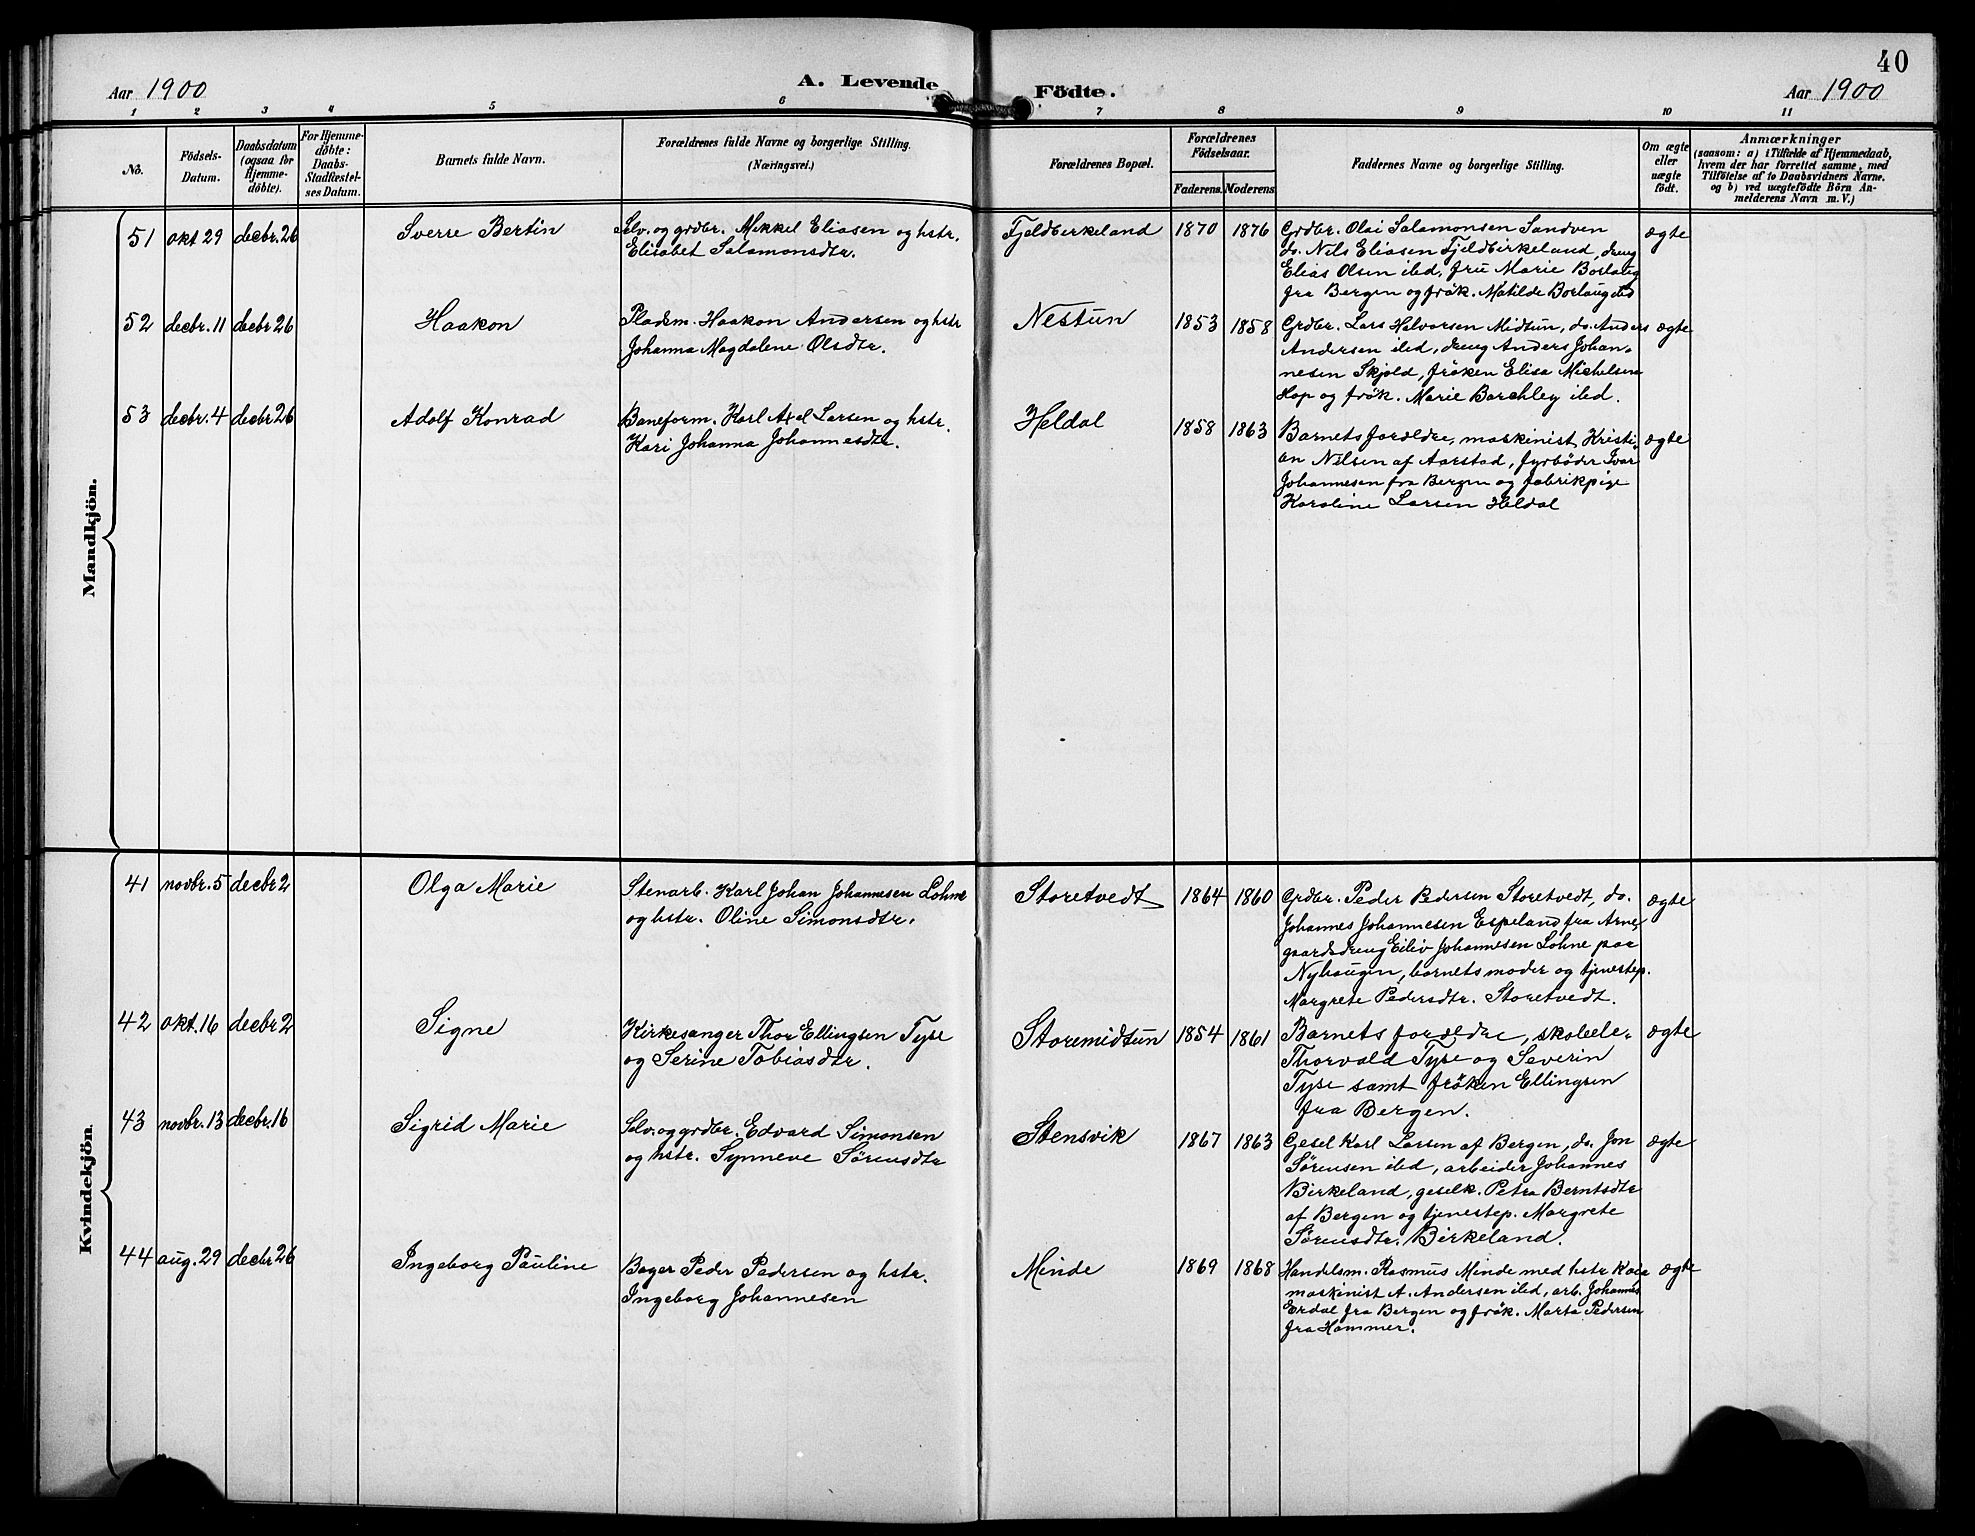 40
Aar 1900
A. Levende Födte.
Aar 1900
1 2 3 4 5 6 7 8 9 10 11
No.
Födsels-
Datum.
Daabsdatum
(ogsaa for
Hjemme-
döbte).
For Hjemme-
döbte:
Daabs-
Stadfæstel-
ses Datum.
Barnets fulde Navn.
Forældrenes fulde Navne og borgerlige Stilling.
(Næringsvei.)
Forældrenes Bopæl.
Forældrenes
Födselsaar.
Faderens. Moderens
Faddernes Navne og borgerlige Stilling.
Om ægte
eller
uægte
födt.
Anmærkninger
(saasom: a) i Tilfælde af Hjemmedaab,
hvem der har forrettet samme, med
Tilföielse af to Daabsvidners Navne.
og b) ved uægtefödte Börn An-
melderens Navn m. V.)
Mandkjön.
51 okt 29 decbr. 26 Sverre Bertin
Selv. og grdbr. Mikkel Eliasen og hstr.
Elisabet Salamonsdtr.
Fjeldbirkeland 1870 1876
Grdbr. Olai Salamonsen Sandven
do. Nils Eliasen Fjeldbirkeland, dreng
Elias Olsen ibd, fru Marie Borlaug
fra Bergen og frøk. Matilde Borlaug ibd
ægte
52 decbr. 11 decbr 26 Haakon
Pladsm. Haakon Andersen og hstr
Johanna Magdalene Olsdtr.
Nestun 1853 1858
Grdbr. Lars Halvorsen Midtun, do. Anders
Andersen ibd, dreng Anders Johan-
nesen Skjold, frøken Elisa Michelsen
Hop og frøk. Marie Barchley ibd.
ægte
53 decbr. 4 decbr 26 Adolf Konrad
Baneform. Karl Axel Larsen og hstr.
Kari Johanna Johannesdtr.
Heldal 1858 1863
Barnets forældre, maskinist Kristi-
an Nilsen af Aarstad, fyrbøder Ivar
Johannesen fra Bergen og fabrikpige
Karoline Larsen Heldal
ægte
Kvindekjön.
41 novbr. 5 decbr 2 Olga Marie
Stenarb. Karl Johan Johannesen Lohne
og hstr. Oline Simonsdtr.
Storetvedt 1864 1860
Grdbr. Peder Pedersen Storetvedt, do.
Johannes Johannesen Espeland fra Arne,
gaardsdreng Eiliv Johannesen Lohne paa
Nyhaugen, barnets moder og tjenestep.
Margrete Pedersdtr. Storetvedt.
ægte
42 okt. 16 decbr 2 Signe
Kirkesanger Thor Ellingsen Tyse
og Serine Tobiasdtr.
Storemidtun 1854 1861
Barnets forældre, skoleele-
Thorvald Tyse og Severin
Tyse samt frøken Ellingsen
fra Bergen.
ægte
43 novbr. 13 decbr. 16 Sigrid Marie
Selv. og grdbr. Edvard Simonsen
og hstr. Synneve Sørensdtr
Stensvik 1867 1863
Gesel Karl Larsen af Bergen, do. Jon
Sørensen ibd, arbeider Johannes
Birkeland, geselk. Petra Berntsdtr
af Bergen og tjenestep. Margrete
Sørensdtr. Birkeland.
ægte
44 aug. 29 decbr 26 Ingeborg Pauline
Bager Peder Pedersen og hstr.
Ingeborg Johannesen
Minde 1869 1868
Handelsm. Rasmus Minde med hstr Kaia
maskinist A. Andersen ibd, arb. Johannes
Erdal fra Bergen og frøk. Marta Pedersen
fra Hammer.
ægte